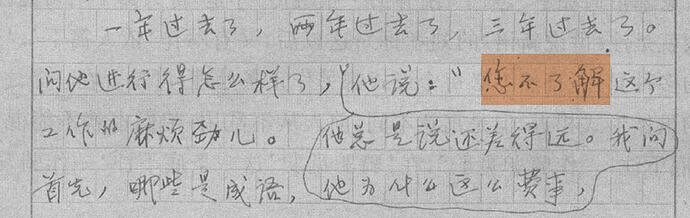 一年过去了，两年过去了，三年过去了。
问他进行得怎么样了，他说：“您不了解这个
工作的麻烦劲儿。他总是说还差得远。我问
首先，哪些是成语，他为什么这么费事，